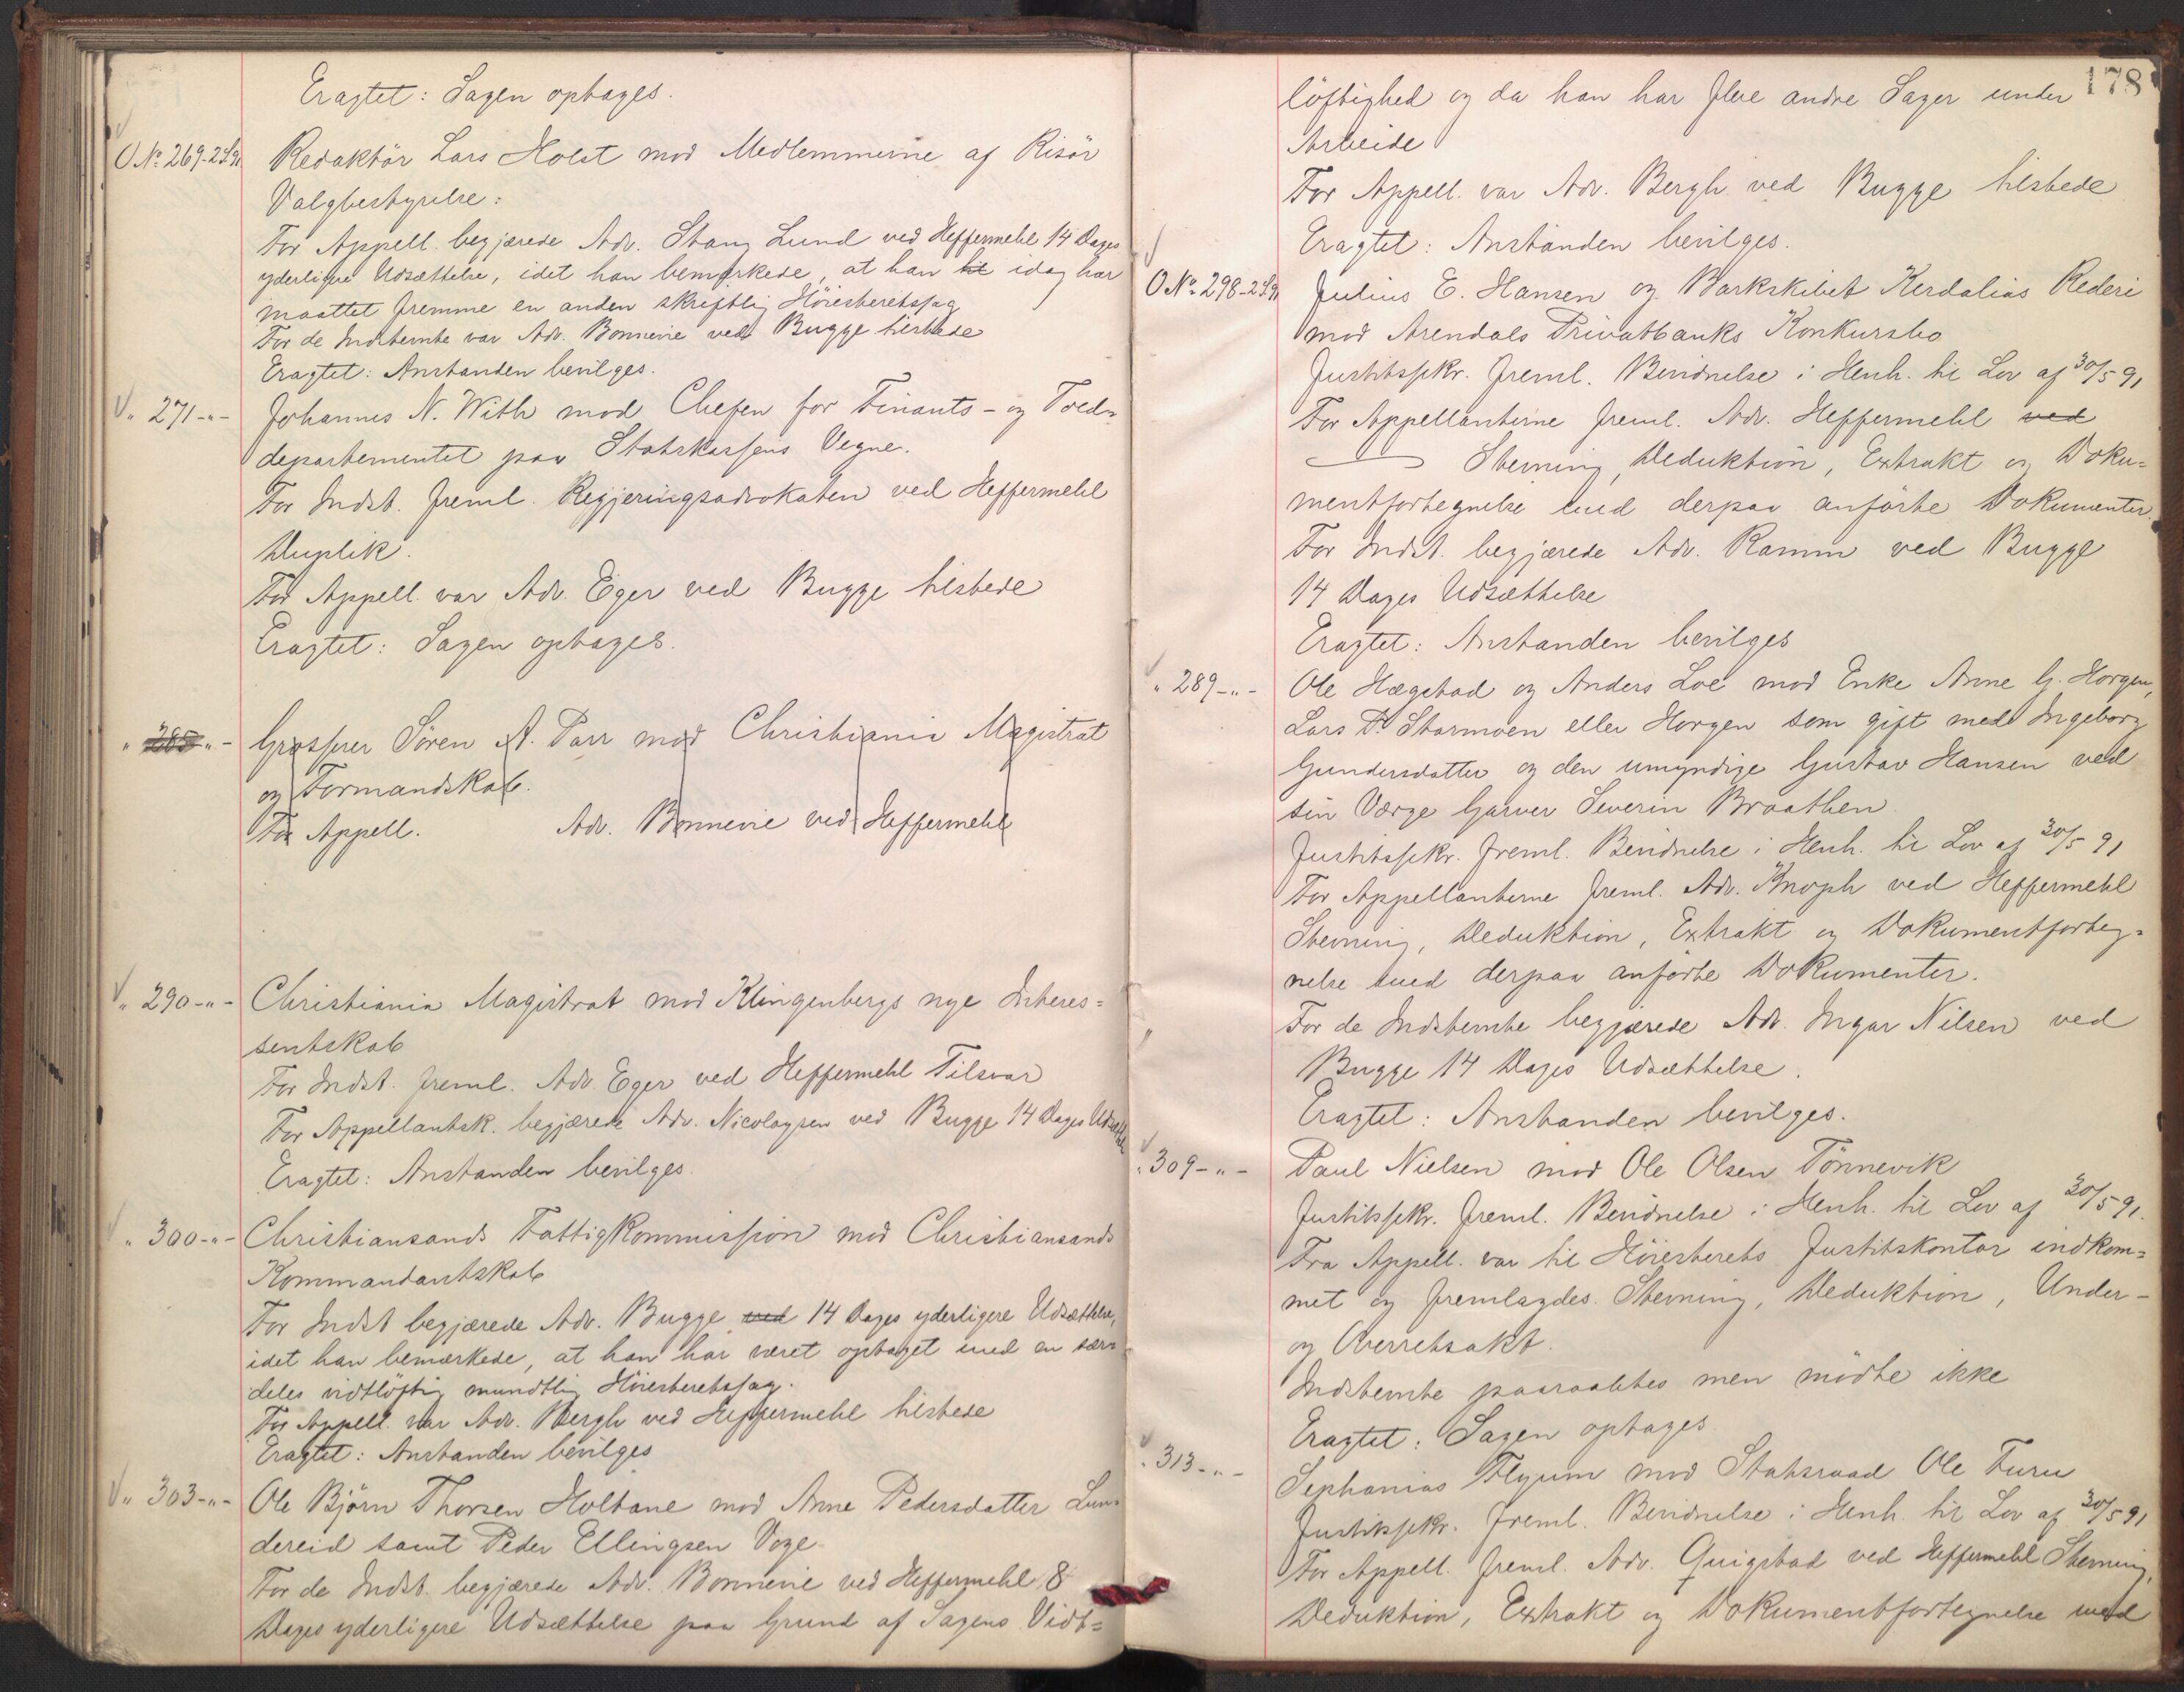 Eragtet: Sagen optages.
O. No. 269-2S91 Redaktör Lars Holst mod Medlemmerne af Risör
Valgbestyrelse:
For Appell. begjærede Adv. Stang Lund ved Heffermehl 14 Dages
yderligere Udsættelse, idet han bemærkede, at han til idag har
maattet fremme en anden skriftlig Höiesteretssag
For de Indstevnte var Adv. Bonnevie ved Bugge tilstede
Eragtet: Anstanden bevilges.
" 271-"- Johannes N. With mod Chefen for Finants- og Told-
departementet paa Statskassens Vegne.
For Indst. freml. Regjeringsadvokaten ved Heffermehl
Duplik.
For Appell. var Adv. Eger ved Bugge tilstede
Eragtet: Sagen optages.
" 285 "- Grosserer Sören A. Parr mod Christiania Magistrat
og Formandskab.
For Appell. Adv. Bonnevie ved Heffermehl
" 290-"- Christiania Magistrat mod Klingenbergs nye Interes=
sentskab
For Indst. freml. Adv. Eger ved Heffermehl Tilsvar
For Appellantsk. begjærede Adv. Nicolaysen ved Bugge 14 Dages Udsættelse
Eragtet: Anstanden bevilges.
" 300-"- Christiansands Fattigkommission mod Christiansands
Kommandantskab
For Indst begjærede Adv. Bugge ved 14 Dages yderligere Udsættelse,
idet han bemærkede, at han har været optaget med en sær=
deles vidtlöftig mundtlig Höiesteretssag.
For Appell. var Adv. Bergh ved Heffermehl tilstede
Eragtet: Anstanden bevilges
" 303-"- Ole Björn Thorsen Holtane mod Anne Pedersdatter Lun=
dereid samt Peder Ellingsen Voge.
For de Indst. begjærede Adv. Bonnevie ved Heffermehl 8
Dages yderligere Udsættelse paa Grund af Sagens Vidt=
178
löftighed og da han har flere andre Sager under
Arbeide
For Appell. var Adv. Bergh ved Bugge tilstede
Eragtet: Anstanden bevilges.
O. No. 298-2S91 Julius E. Hansen og Barkskibet Kerdalias Rederi
mod Arendals Privatbanks Konkursbo
Justitssekr. freml. Bevidnelse i Henh. til Lov af 30/5 91
For Appellanterne freml. Adv. Heffermehl ved
Stevning, Deduktion, Extrakt og Doku=
mentfortegnelse med derpaa anförte Dokumenter.
For Indst. begjærede Adv. Ramm ved Bugge
14 Dages Udsættelse
Eragtet: Anstanden bevilges
" 289-"- Ole Hægstad og Anders Loe mod Enke Anne G. Horgen,
Lars P. Stormoen eller Horgen som gift med Ingeborg
Gundersdatter og den umyndige Gustav Hansen ved
sin Værge Garver Severin Braathen
Justitssekr. freml. Bevidnelse i Henh. til Lov af 30/5 91
For Appellanterne freml. Adv. Knoph ved Heffermehl
Stevning, Deduktion, Extrakt og Dokumentforteg=
nelse med derpaa anförte Dokumenter.
For de Indstevnte begjærede Adv. Ingar Nilsen ved
Bugge 14 Dages Udsættelse.
Eragtet: Anstanden bevilges.
" 309-"- Paul Nielsen mod Ole Olsen Tönnevik
Justitssekr. freml. Bevidnelse i Henh. til Lov af 30/5 91.
Fra Appell. var til Höiesterets Justitskontor indkom=
met og fremlagdes Stevning, Deduktion, Under-
og Overretsakt.
Indstevnte paaraabtes men mödte ikke
Eragtet: Sagen optages
" 313-"- Sephanias Flyum mod Statsraad Ole Furu
Justitssekr. freml. Bevidnelse i Henh. til Lov af 30/5 91
For Appell. freml. Adv. Quigstad ved Heffermehl Stevning,
Deduktion, Extrakt og Dokumentfortegnelse med